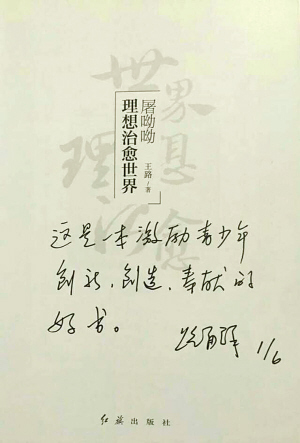 屠呦呦
理想治愈世界
王路/著
这是一本激励青少年
创新、创造、奉献的
好书。
1/6
红旗出版社